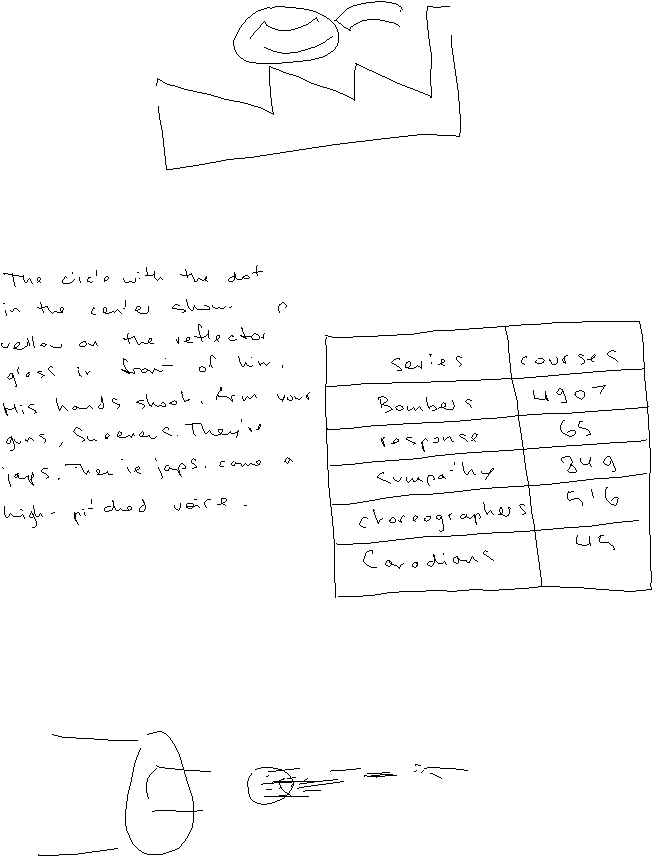 The circle with the dot
in the center show. a
yellow on the reflector
glass in front of him.
His hands shook. Arm your
guns, Sweeney. They're
japs. They're japs. came a
high-pitched voice.
series courses
Bombers 4907
response 65
sympathy 849
choreographers 516
Canadians 45